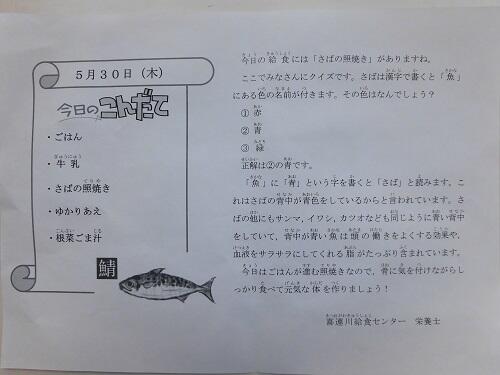 5月30日（木）
今日のこんだて
・ごはん
・牛乳
・さばの照焼き
・ゆかりあえ
・根菜ごま汁
鯖
今日の給食には「さばの照焼き」がありますね。
ここでみなさんにクイズです。さばは漢字で書くと「魚」
にある色の名前が付きます。その色はなんでしょう？
① 赤
② 青
③ 緑
正解は②の青です。
「魚」に「青」という字を書くと「さば」と読みます。こ
れはさばの背中が青色をしているからと言われています。さ
ばの他にもサンマ、イワシ、カツオなども同じように青い背中
をしていて、背中が青い魚は頭の働きをよくする効果や、
血液をサラサラにしてくれる脂がたっぷり含まれています。
今日はごはんが進む照焼きなので、骨に気を付けながらし
っかり食べて元気な体を作りましょう！
喜連川給食センター　栄養士